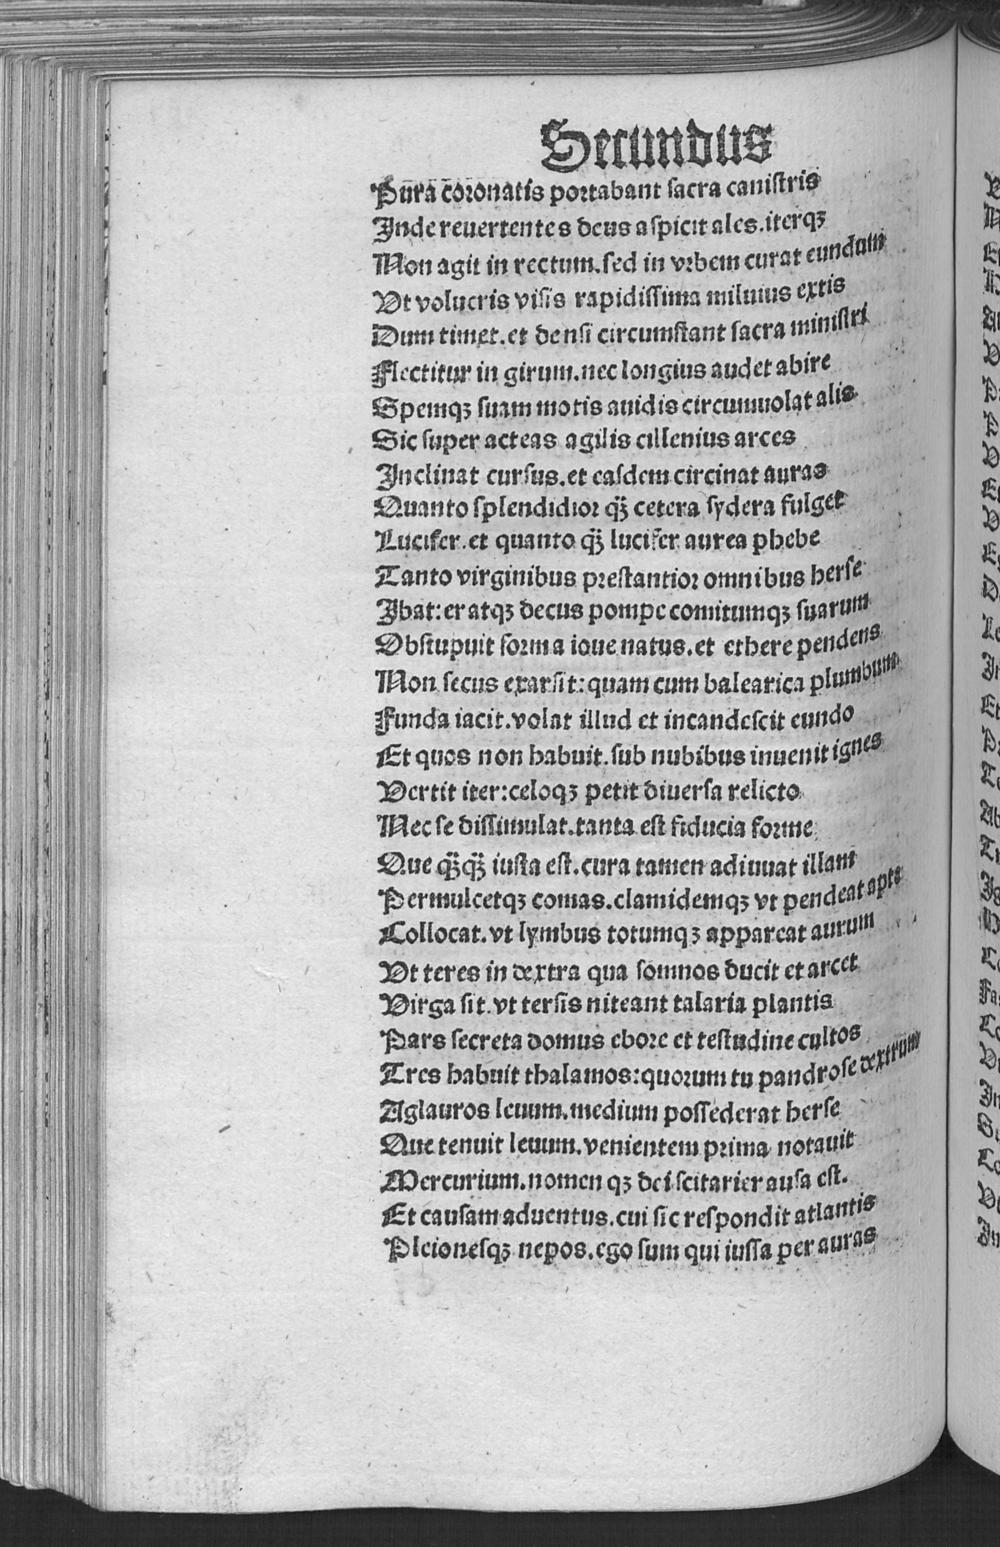 Secundus
Pura coronatis portabant sacra canistris
Inde reuertentes deus aspicit ales.iterqꝫ
Non agit in rectum.sed in vrbem curat eundum
Vt volucris visis rapidissima miluius extis
Dum timet.et densi circumstant sacra ministri
Flectitur in girum.nec longius audet abire
Spemqꝫ suam motis auidis circumuolat alis
Sic super acteas agilis cillenius arces
Inclinat cursus.et easdem circinat auras
Quanto splendidior q̄ꝫ cetera sydera fulget
Lucifer.et quanto q̄ꝫ lucifer aurea phebe
Tanto virginibus prestantior omnibus herse
Ibat:eratqꝫ decus pompe comitumqꝫ suarum
Obstupuit forma ioue natus.et ethere pendens
Non secus exarsit:quam cum balearica plumbum
Funda iacit.volat illud et incandescit eundo
Et quos non habuit.sub nubibus inuenit ignes
Vertit iter:celoqꝫ petit diuersa relicto
Nec se dissimulat.tanta est fiducia forme
Que q̄ꝫq̄ꝫ iusta est.cura tamen adiuuat illam
Permulcetqꝫ comas.clamidemqꝫ vt pendeat apte
Collocat.vt lymbus totumqꝫ appareat aurum
Vt teres in dextra qua somnos ducit et arcet
Virga sit.vt tersis niteant talaria plantis
Pars secreta domus ebore et testudine cultos
Tres habuit thalamos:quorum tu pandrose dextrum
Aglauros leuum.medium possederat herse
Que tenuit leuum.venientem prima notauit
Mercurium.nomen qꝫ dei scitarier ausa est.
Et causam aduentus.cui sic respondit atlantis
Pleionesqꝫ nepos.ego sum qui iussa per auras